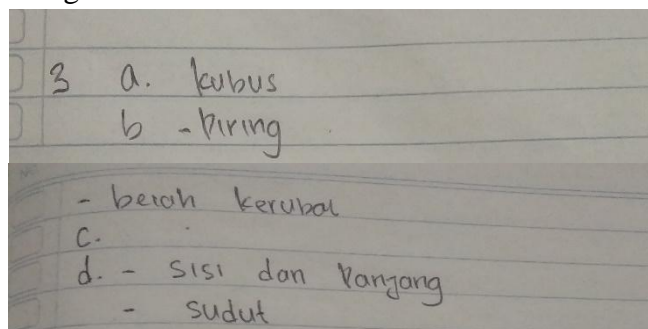 3 a. kubus
b - piring
- belah kerubal
c.
d. - sisi dan Panjang
- sudut